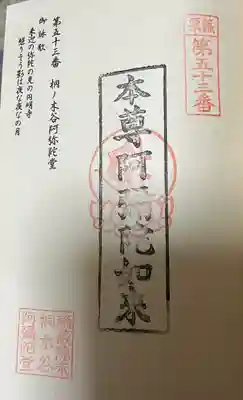 第五十三番
本尊阿彌陀如来
第五十三番 桐ノ木谷阿弥陀堂
御詠歌
来迎の弥陀の光の円明寺
照りそう影は夜な夜なの月
桐木谷
阿彌陀堂